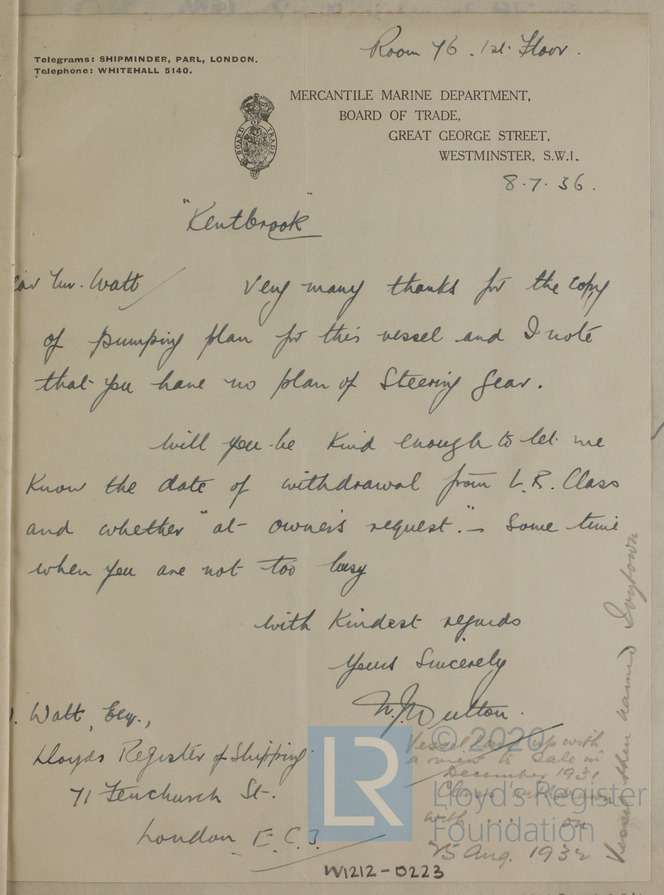 Room 76. 1st. Floor.
Telegrams: SHIPMINDER, PARL, LONDON.
Telephone: WHITEHALL 5140.
MERCANTILE MARINE DEPARTMENT,
BOARD OF TRADE,
GREAT GEORGE STREET,
WESTMINSTER, S.W.1.
BOARD OF TRADE
8.7.36.
"Kentbrook"
Mr. Watt Very many thanks for the copy
of pumping plan for this vessel and I note
that you have no plan of Steering Gear.
Will you be kind enough to let me
know the date of withdrawal from L.R. Class
and whether "at owner's request". – Some time
when you are not too busy
With Kindest regards
Yours Sincerely
Watt, Esq.,
Lloyds Register of Shipping
71 Fenchurch St.
London E.C.3.
Vessel up with
a view to Sale in
December 1931
Class
with on
25 Aug. 1932
Vessel then named Ivytown
LR
© 2020
Lloyd's Register
Foundation
W1212-0223